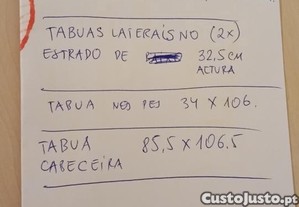 TABUAS LATERAIS NO (2x)
ESTRADO DE 32,5 cm
ALTURA
TABUA NOS PES 34 x 106.
TABUA 85,5 x 106.5
CABECEIRA
CustoJusto.pt